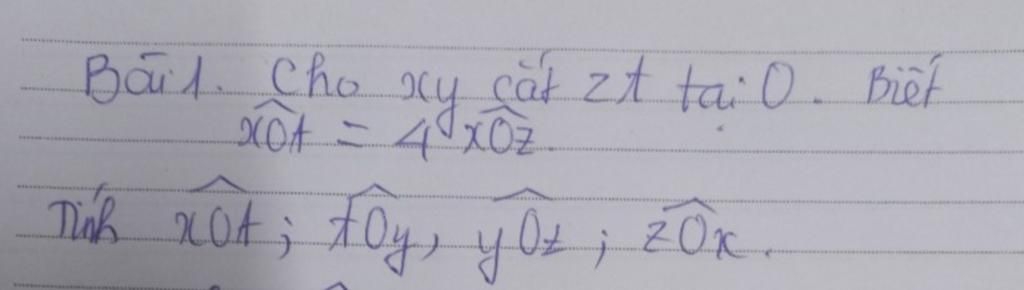 Bài 1. Cho xy cắt zt tại O. Biết
$\widehat{xOt} = 4\widehat{xOz}$.
Tính $\widehat{xOt}$; $\widehat{tOy}$, $\widehat{yOz}$; $\widehat{zOx}$.